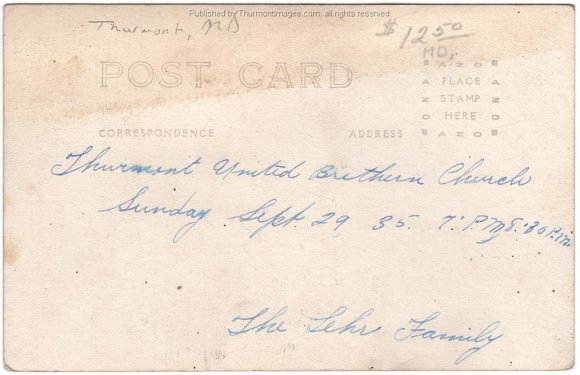 Published by ThurmontImages.com, all rights reserved
Thurmont, MD
$12.50
MD,
POST CARD
AZO
PLACE
STAMP
HERE
AZO
AZO
AZO
CORRESPONDENCE
ADDRESS
Thurmont United Brethern Church
Sunday Sept. 29 35. 7: P.M. 8:30 P.m.
The Lehr Family